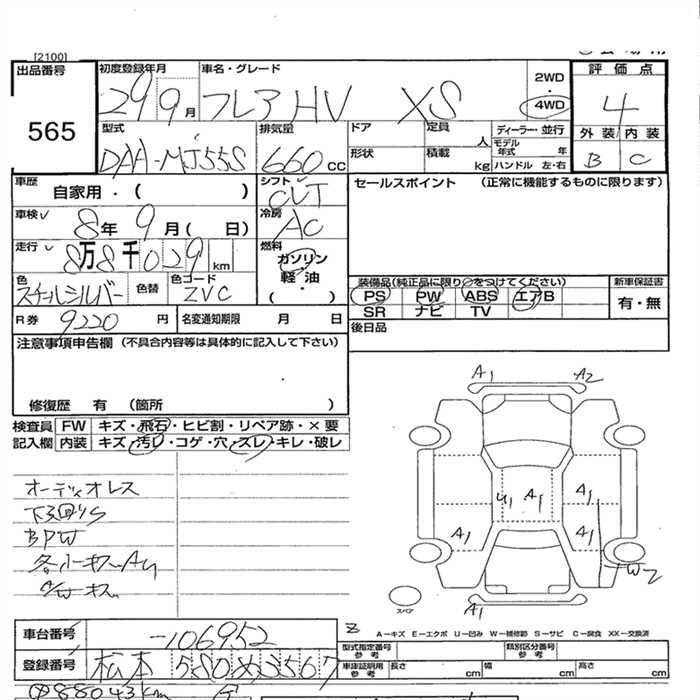 [2100]
出品番号
565
初度登録年月
29 9月
車名・グレード
フレアHV XS
2WD
・
4WD
評価点
4
外装 内装
B C
型式
DAA-MJ55S
排気量
660 CC
ドア
定員
人
形状
積載
kg
ディーラー・並行
モデル年式 年
ハンドル 左・右
車歴
自家用・( )
シフト
CVT
セールスポイント (正常に機能するものに限ります)
車検
8年 9月( 日)
冷房
AC
走行
8万8千029 km
燃料
ガソリン
軽・油
( ・ )
色
スチールシルバー
色替
色コード
ZVC
装備品(純正品に限り○をつけてください)
PS PW ABS エアB
SR ナビ TV
新車保証書
有・無
R券
9220 円
名変通知期限 月 日
後日品
注意事項申告欄 (不具合内容等は具体的に記入して下さい)
修復歴 有 (箇所 )
検査員
記入欄
FW キズ・飛石・ヒビ割・リペア跡・×要
内装 キズ・汚レ・コゲ・穴・スレ・キレ・破レ
オーディオレス
下回りS
BPW
各小キズA4
A/Wキズ
A1 A2
U1 A1 A1
A1 A1
W2
A1
スペア
A-キズ E-エクボ U-凹み W-補修跡 S-サビ C-腐食 XX-交換済
車台番号
-106952
登録番号
松本 580 3567
型式指定番号
参考
類別区分番号
参考
車庫証明用
参考
長さ cm
幅 cm
高さ cm
88043km